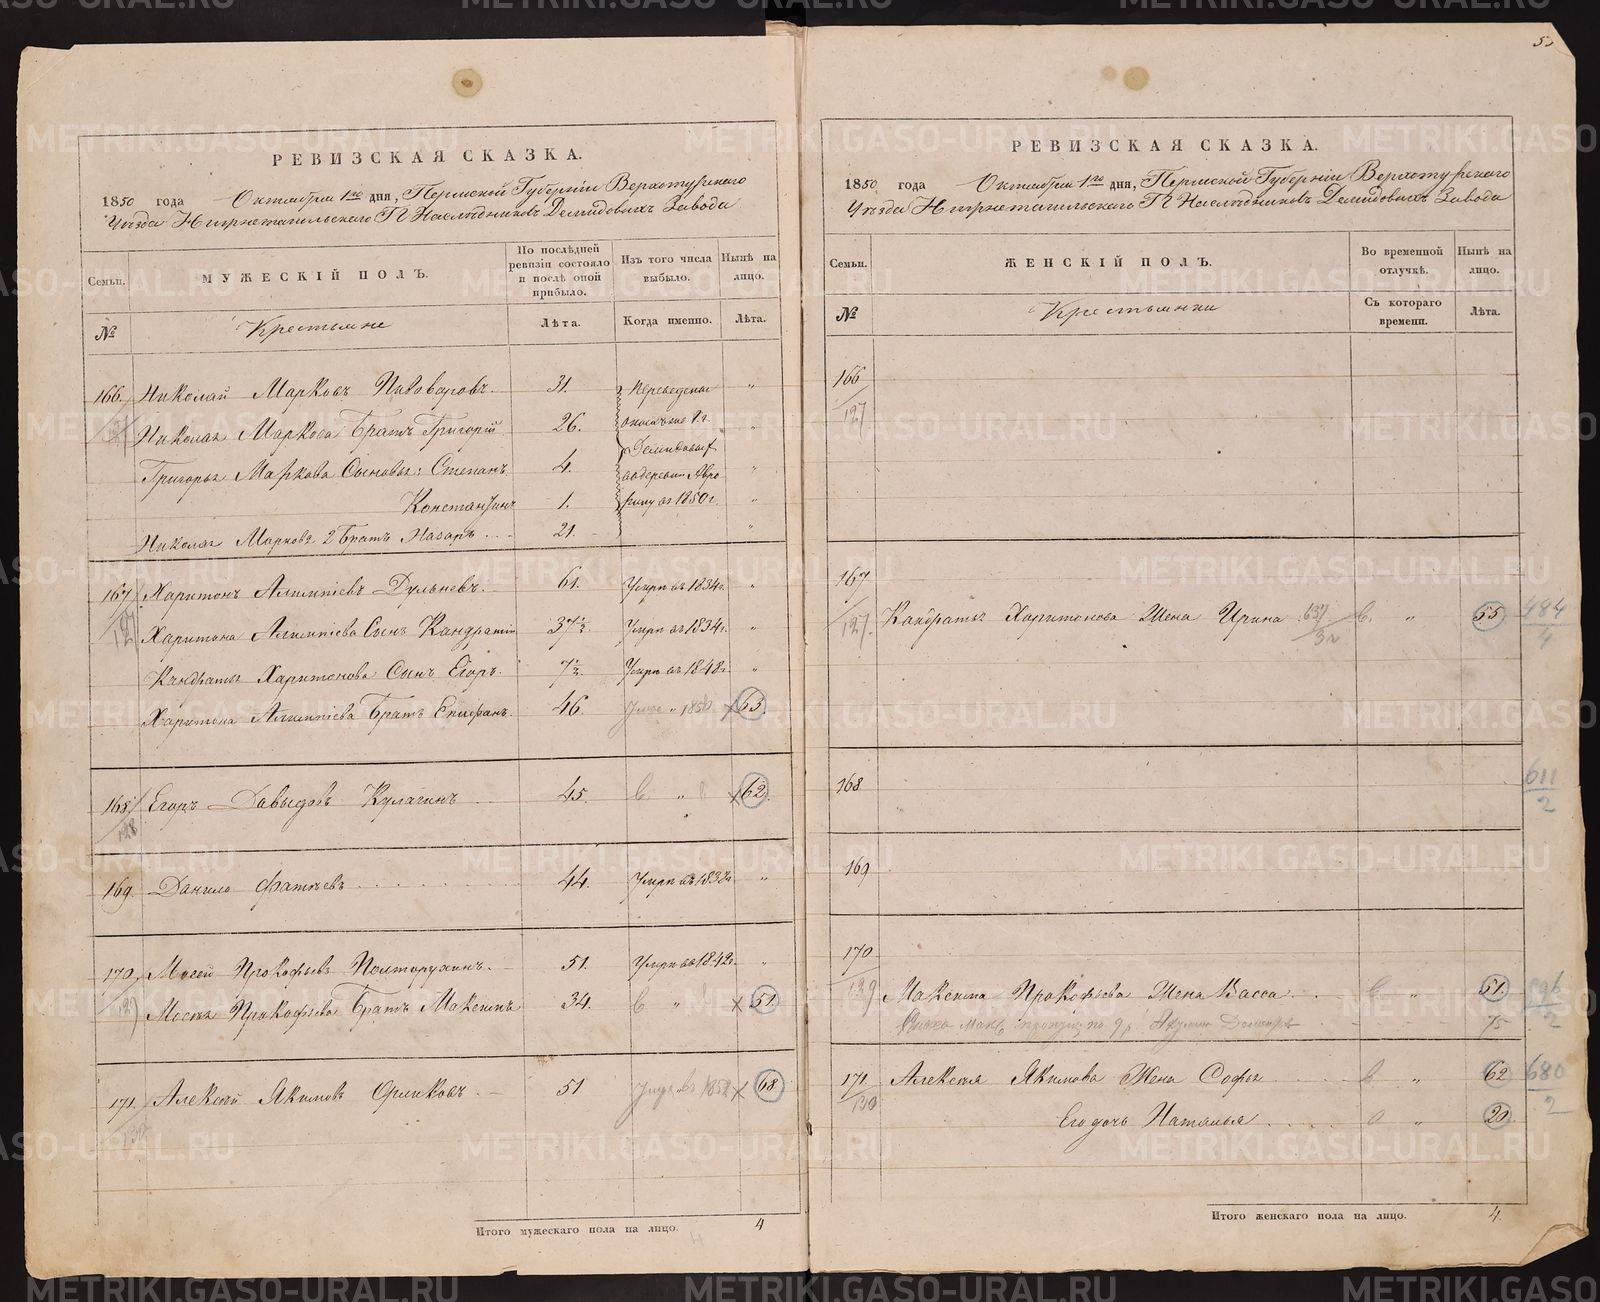 РЕВИЗСКАЯ СКАЗКА.
1850 года Октября 1го дня, Пермской Губерніи Верхотурскаго
Уѣзда Нижнетагильскаго Г.П. Наслѣдниковъ Демидовыхъ Завода
Семьи.
МУЖЕСКІЙ ПОЛЪ.
По послѣдней ревизіи состояло и послѣ оной прибыло.
Изъ того числа выбыло.
Нынѣ на лицо.
№
Крестьяне
Лѣта.
Когда именно.
Лѣта.
166. Николай Марковъ Пивоваровъ. 31. Переведены "
Николая Маркова Братъ Григорій 26. "
Григорья Маркова Сыновья: Степанъ 4. Демидовыхъ "
Константинъ 1. въ 1850 г. "
Николая Маркова 2 Братъ Назаръ 21. "
167 Харитонъ Алимпіевъ Дульневъ. 61. Умеръ въ 1834 г. "
127
Харитона Алимпіева Сынъ Кандратій 37½. Умеръ въ 1834 г. "
Кандратья Харитонова Сынъ Егоръ. 7½. Умеръ въ 1848 г. "
Харитона Алимпіева Братъ Епифанъ. 46. 1850 63
168 Егоръ Давыдовъ Кулагинъ 45. " 62.
128
169. Данило Фатѣевъ 44. Умеръ въ 1832 г. "
170 Мосей Прокофьевъ Полторухинъ. 51. Умеръ въ 1842 г. "
129
Мосея Прокофьева Братъ Максимъ 34. " 51.
171. Алексѣй Якимовъ Орликовъ. 51 1852 68
130
Итого мужескаго пола на лицо. 4
РЕВИЗСКАЯ СКАЗКА.
1850 года Октября 1го дня, Пермской Губерніи Верхотурскаго
Уѣзда Нижнетагильскаго Г.П. Наслѣдниковъ Демидовыхъ Завода
Семьи.
ЖЕНСКІЙ ПОЛЪ.
Во временной отлучкѣ.
Нынѣ на лицо.
№
Крестьянки
Съ котораго времени.
Лѣта.
166
127
167
127. Кандратья Харитонова Жена Ирина " 55 484
4
168 611
2
169
170
129 Максима Прокофьева Жена Васса " 51
2
75
171. Алексѣя Якимова Жена Софья " 62 680
130 2
Его дочь Наталья " 20
Итого женскаго пола на лицо. 4.
METRIKI.GASO-URAL.RU